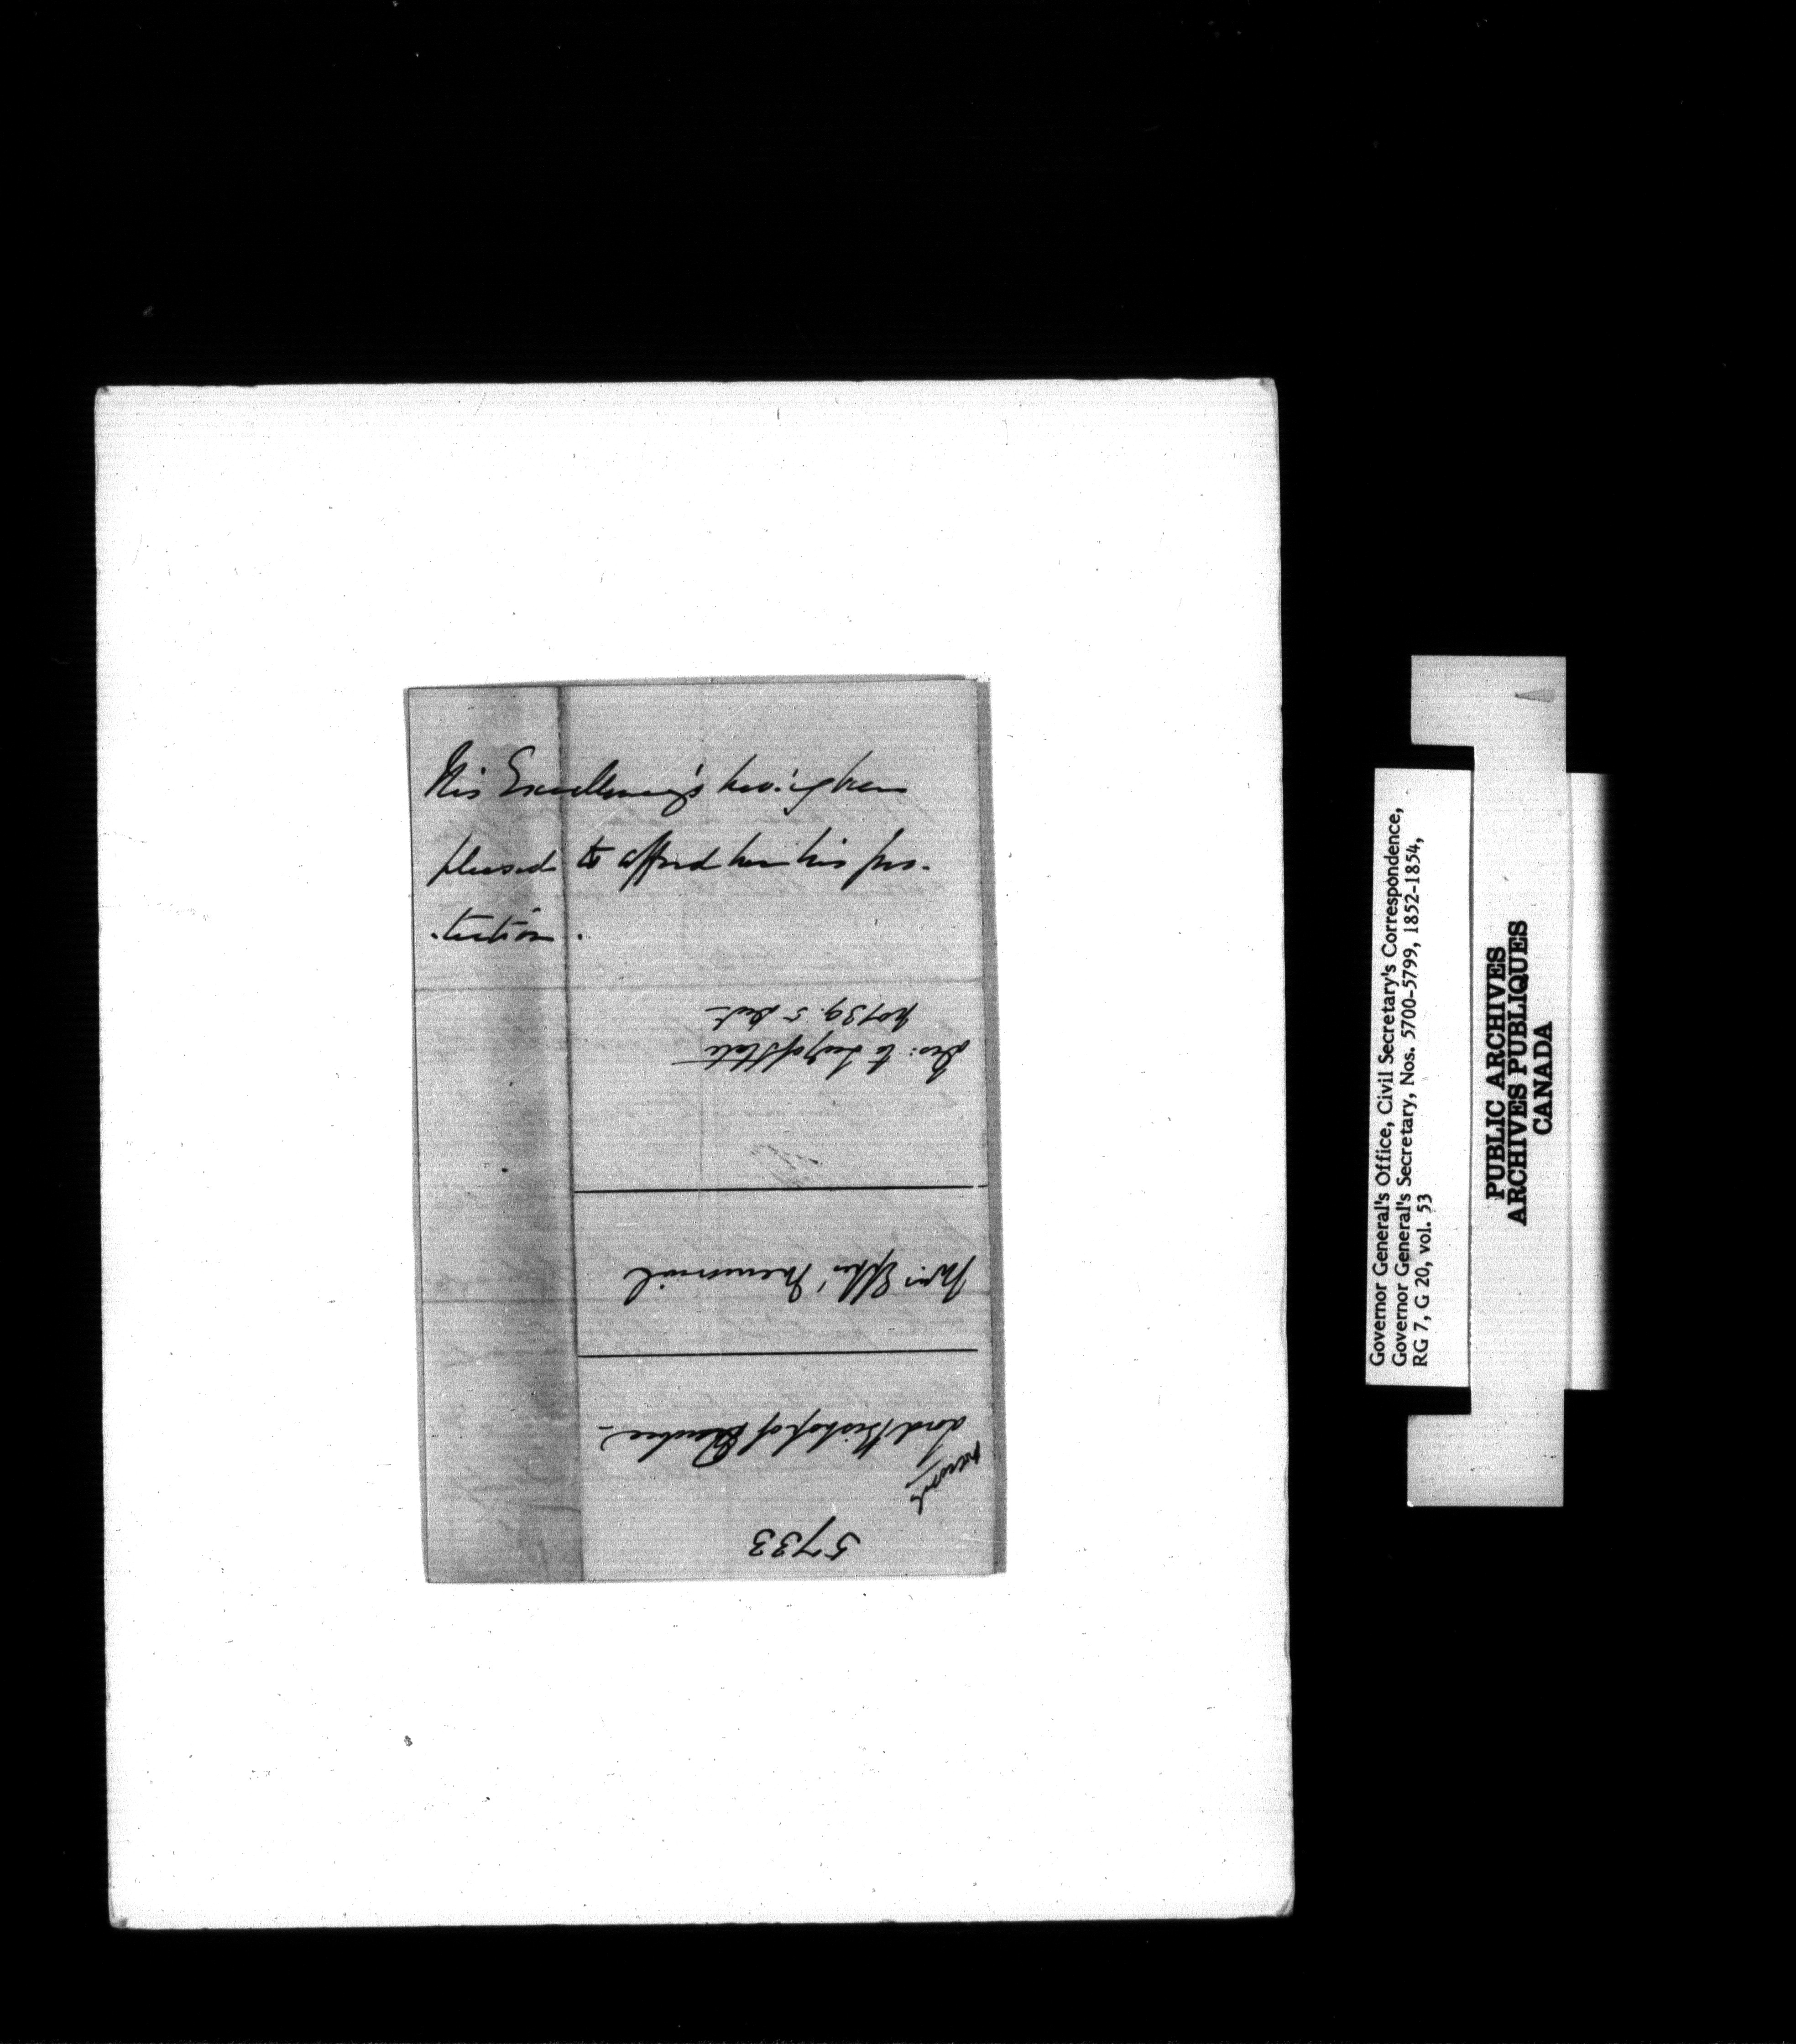 His Excellency's having been
pleased to afford him his pro-
-tection.
5733
Lord Bishop of Quebec -
Memorial
to Secy of State
5 Oct
Governor General's Office, Civil Secretary's Correspondence,
Governor General's Secretary, Nos. 5700-5799, 1852-1854,
RG 7, G 20, vol. 53
PUBLIC ARCHIVES
ARCHIVES PUBLIQUES
CANADA